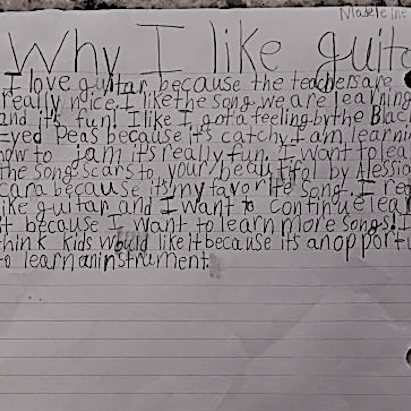 Madeleine
Why I like guita
I love guitar, because the teachers are
really nice. I like the song we are learning
and it's fun! I like I got a feeling by the Blac
Eyed Peas because it's catchy. I am learnin
how to jam it's really fun. I want to lea
the song scars to your beautiful by Alessia
cara because it's my favorite song. I re
like guitar and I want to continue lear
it because I want to learn more songs! I
think kids would like it because its an opportu
to learn an instrument.